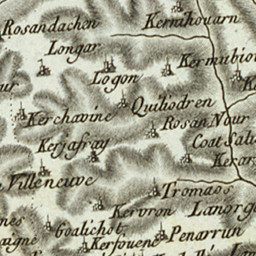 Rosandachen
Kernihouarn
Longar
Kermubiou
Logon
Quiliodren
Kerchavine
Rosan Nour
Kerjafray
Coat Sali
Kerar
Villeneuve
Tromaos
Kervron
Lanorg
Goalichot
Penarrun
aigne
Kerfouene